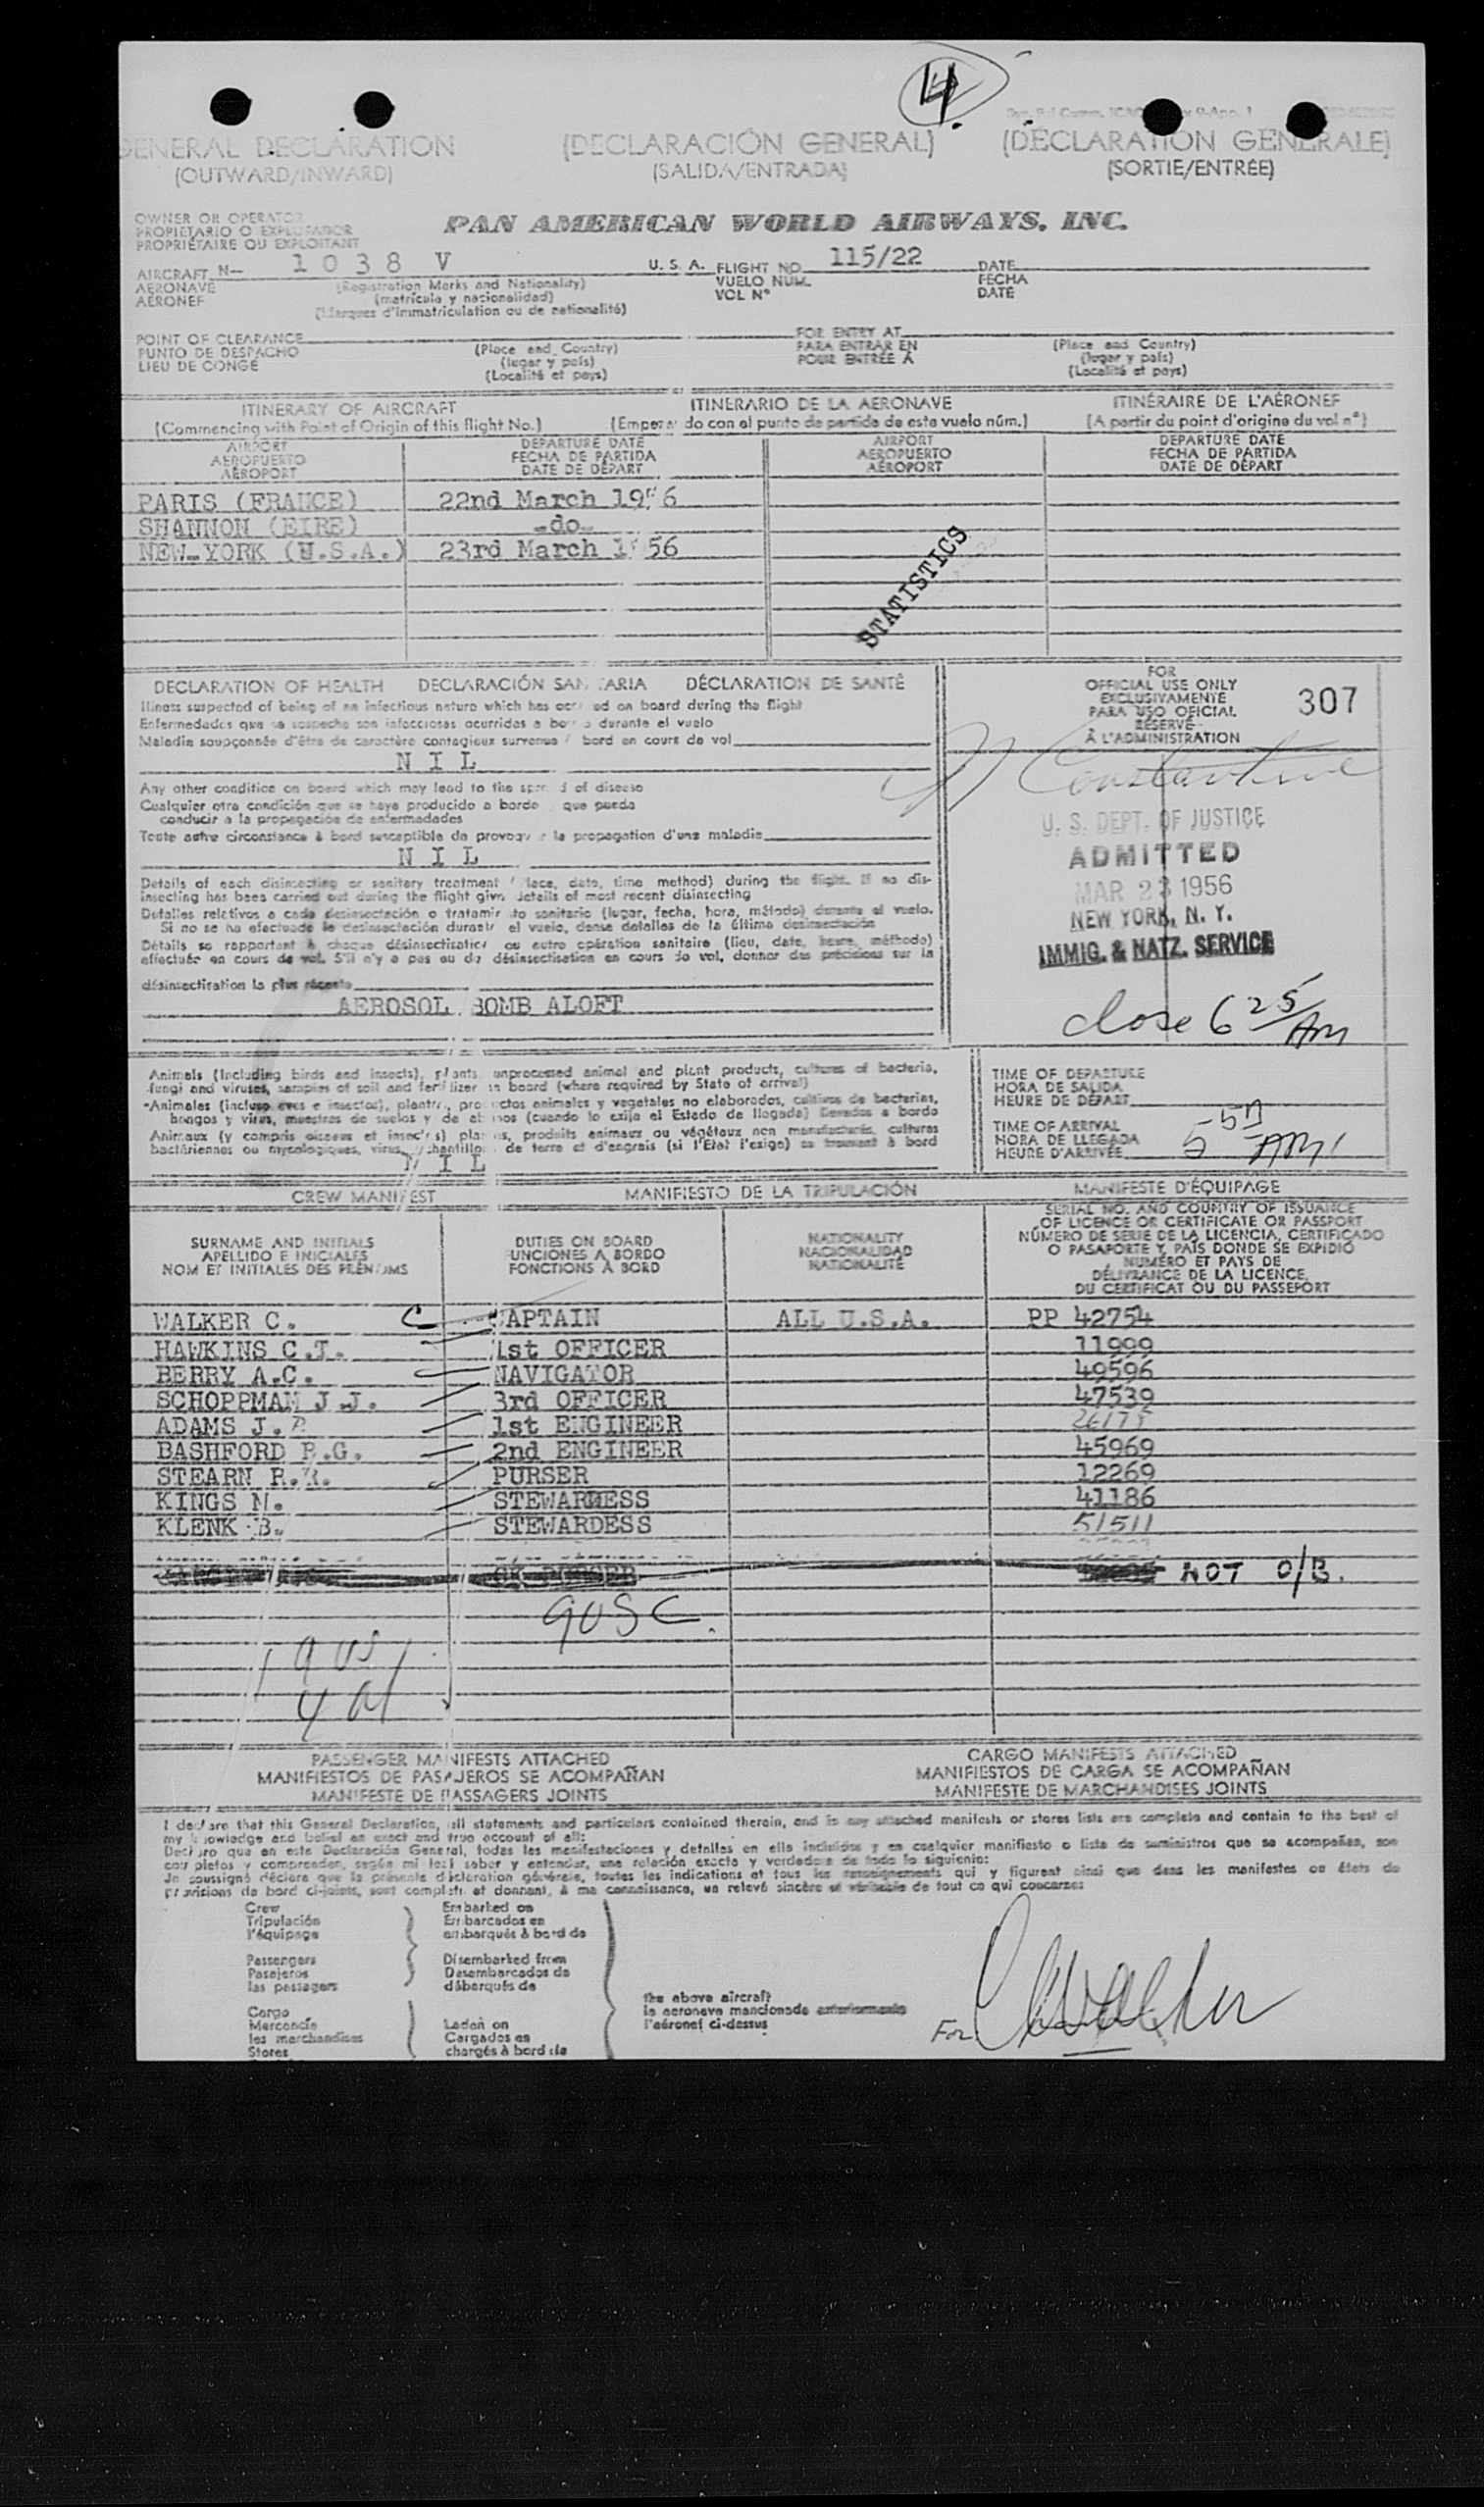 4.
GENERAL DECLARATION (DECLARACIÓN GENERAL) (DÉCLARATION GÉNÉRALE)
(OUTWARD/INWARD) (SALIDA/ENTRADA) (SORTIE/ENTRÉE)
OWNER OR OPERATOR
PROPIETARIO O EXPLOTADOR
PROPRIÉTAIRE OU EXPLOITANT
PAN AMERICAN WORLD AIRWAYS, INC.
AIRCRAFT N— 1 0 3 8 V U. S. A. FLIGHT NO. 115/22 DATE
AERONAVE (Registration Marks and Nationality) VUELO NUM. FECHA
AÉRONEF (matrícula y nacionalidad) VOL N° DATE
(Marques d'immatriculation ou de nationalité)
POINT OF CLEARANCE FOR ENTRY AT
PUNTO DE DESPACHO (Place and Country) PARA ENTRAR EN (Place and Country)
LIEU DE CONGÉ (lugar y país) POUR ENTRÉE À (lugar y país)
(Localité et pays) (Localité et pays)
ITINERARY OF AIRCRAFT ITINERARIO DE LA AERONAVE ITINÉRAIRE DE L'AÉRONEF
(Commencing with Point of Origin of this flight No.) (A partir du point d'origine du vol n°)
AIRPORT DEPARTURE DATE AIRPORT DEPARTURE DATE
AEROPUERTO FECHA DE PARTIDA AEROPUERTO FECHA DE PARTIDA
AÉROPORT DATE DE DÉPART AÉROPORT DATE DE DÉPART
PARIS (FRANCE) 22nd March 1956
SHANNON (EIRE) -do-
NEW-YORK (U.S.A.) 23rd March 1956
STATISTICS
DECLARATION OF HEALTH DECLARACIÓN SANITARIA DÉCLARATION DE SANTÉ
Illness suspected of being of an infectious nature which has occurred on board during the flight
Enfermedades que se sospecha son infecciosas ocurridas a bordo durante el vuelo
Maladie soupçonnée d'être de caractère contagieux survenue à bord en cours de vol
N I L
Any other condition on board which may lead to the spread of disease
Cualquier otra condición que se haya producido a bordo y que pueda
conducir a la propagación de enfermedades
Toute autre circonstance à bord susceptible de provoquer la propagation d'une maladie
N I L
Details of each disinsecting or sanitary treatment (place, date, time method) during the flight. If no dis-
insecting has been carried out during the flight give details of most recent disinsecting
Detalles relativos a cada desinsectación o tratamiento sanitario (lugar, fecha, hora, método) durante el vuelo.
Si no se ha efectuado la desinsectación durante el vuelo, dense detalles de la última desinsectación
Détails se rapportant à chaque désinsectisation ou autre opération sanitaire (lieu, date, heure, méthode)
effectuée en cours de vol. S'il n'y a pas eu de désinsectisation en cours de vol, donner des précisions sur la
désinsectisation la plus récente
AEROSOL BOMB ALOFT
FOR
OFFICIAL USE ONLY
EXCLUSIVAMENTE
PARA USO OFICIAL
RÉSERVÉ
À L'ADMINISTRATION
307
Constantine
U. S. DEPT. OF JUSTICE
ADMITTED
MAR 23 1956
NEW YORK, N. Y.
IMMIG. & NATZ. SERVICE
close 6 25 AM
Animals (including birds and insects), plants, unprocessed animal and plant products, cultures of bacteria,
fungi and viruses, samples of soil and fertilizer on board (where required by State of arrival)
Animales (incluso aves e insectos), plantas, productos animales y vegetales no elaborados, cultivos de bacterias,
hongos y virus, muestras de suelos y de abonos (cuando lo exija el Estado de llegada) llevados a bordo
Animaux (y compris oiseaux et insectes) plantes, produits animaux ou végétaux non manufacturés, cultures
bactériennes ou mycologiques, virus, échantillons de terre et d'engrais (si l'Etat l'exige) se trouvant à bord
N I L
TIME OF DEPARTURE
HORA DE SALIDA
HEURE DE DÉPART
TIME OF ARRIVAL
HORA DE LLEGADA
HEURE D'ARRIVÉE 5 AM
CREW MANIFEST MANIFIESTO DE LA TRIPULACIÓN MANIFESTE D'ÉQUIPAGE
SURNAME AND INITIALS
APELLIDO E INICIALES
NOM ET INITIALES DES PRÉNOMS
DUTIES ON BOARD
FUNCIONES A BORDO
FONCTIONS À BORD
NATIONALITY
NACIONALIDAD
NATIONALITÉ
SERIAL NO. AND COUNTRY OF ISSUANCE
OF LICENCE OR CERTIFICATE OR PASSPORT
NÚMERO DE SERIE DE LA LICENCIA, CERTIFICADO
O PASAPORTE Y PAÍS DONDE SE EXPIDIÓ
NUMÉRO ET PAYS DE
DÉLIVRANCE DE LA LICENCE,
DU CERTIFICAT OU DU PASSEPORT
WALKER C. C CAPTAIN ALL U.S.A. PP 42754
HAWKINS C.T. 1st OFFICER 11999
BERRY A.C. NAVIGATOR 49596
SCHOPPMAN J.J. 3rd OFFICER 47539
ADAMS J. 1st ENGINEER 26175
BASHFORD R.G. 2nd ENGINEER 45969
STEARN R. PURSER 12269
KINGS M. STEWARDESS 41186
KLENK B. STEWARDESS 51511
NOT O/B.
9 US C.
9 US
4 al
PASSENGER MANIFESTS ATTACHED CARGO MANIFESTS ATTACHED
MANIFIESTOS DE PASAJEROS SE ACOMPAÑAN MANIFIESTOS DE CARGA SE ACOMPAÑAN
MANIFESTE DE PASSAGERS JOINTS MANIFESTE DE MARCHANDISES JOINTS
I declare that this General Declaration, all statements and particulars contained therein, and in any attached manifests or stores lists are complete and contain to the best of
my knowledge and belief an exact and true account of all:
Declaro que en esta Declaración General, todas las manifestaciones y detalles en ella incluidos y en cualquier manifiesto o lista de suministros que se acompañan, son
completos y comprenden, según mi leal saber y entender, una relación exacta y verdadera de todo lo siguiente:
Je soussigné déclare que la présente déclaration générale, toutes les indications et tous les renseignements qui y figurent ainsi que dans les manifestes ou états de
provisions de bord ci-joints, sont complets et donnant, à ma connaissance, un relevé sincère et véritable de tout ce qui concerne:
Crew Embarked on
Tripulación Embarcados en
l'équipage embarqués à bord de
Passengers Disembarked from
Pasajeros Desembarcados de
les passagers débarqués de
the above aircraft
la aeronave mencionada anteriormente
l'aéronef ci-dessus
Cargo
Mercancía Laden on
les marchandises Cargados en
Stores chargés à bord de
For C Walker